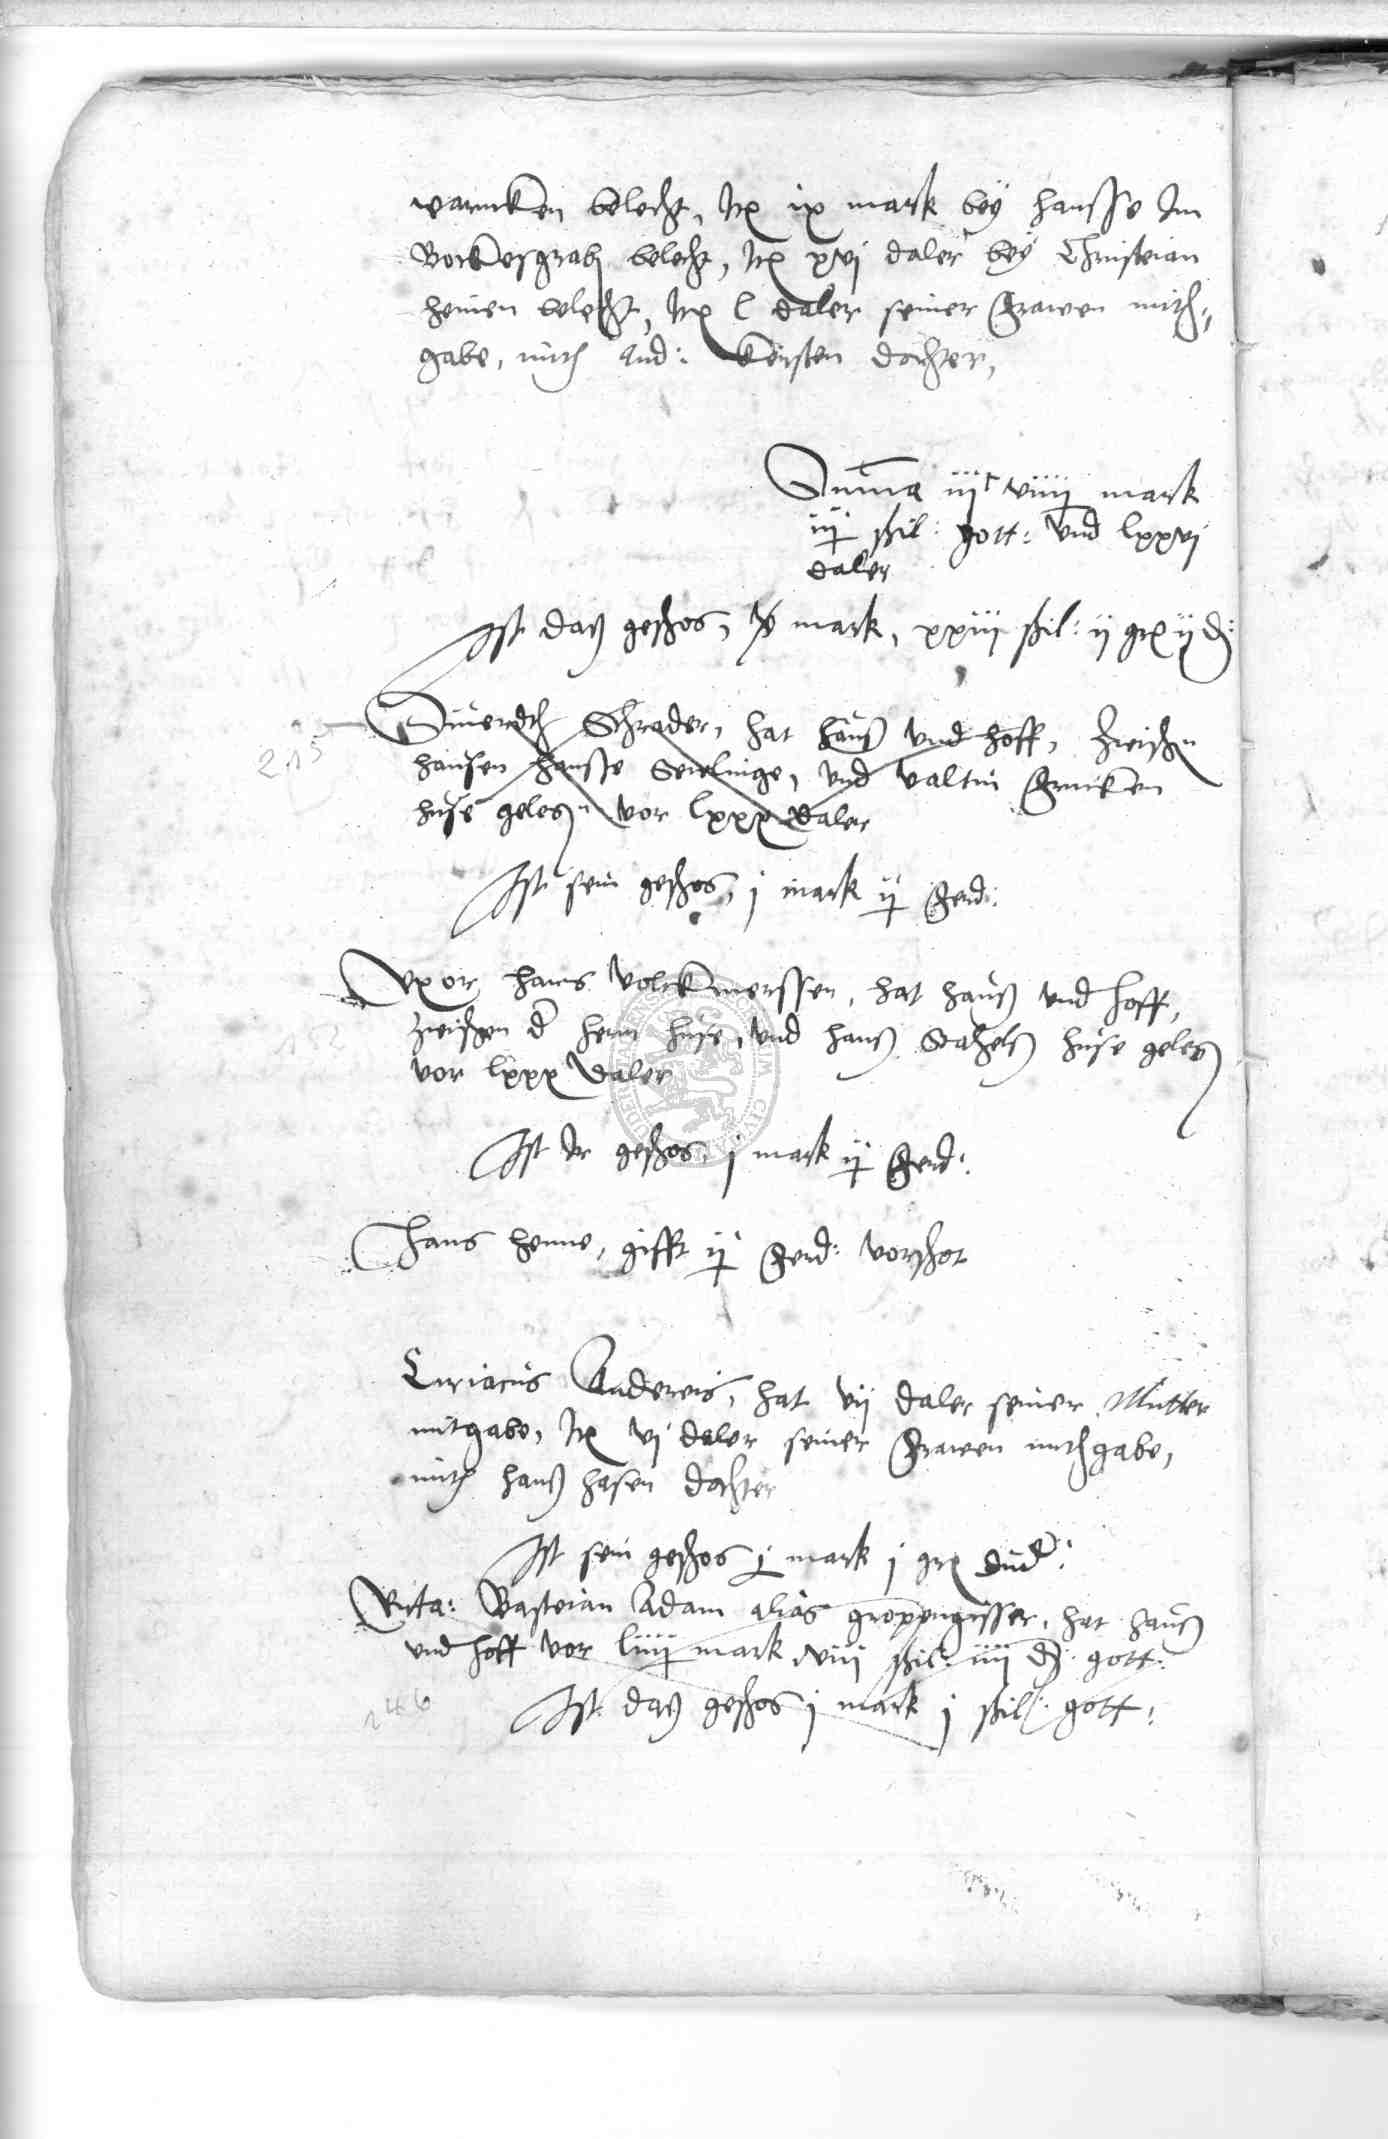 warnken belecht, Itx ix mark bey hansse Im
Bockesgrab belecht, Itx xvj daler bey Christoian
heinen belecht, Itx l daler seiner frawen mith
gabe, mith And: Kersten dochter,
Summa iijc viiij mark
iij ßil: gott: vnd lxxvj
daler
Ist daß geschos, v mark, xxiij ßil: ij grx ij d:
Siuerdth Schrader, hat hauß vnd hoff, zwischen
hansen hansse Sevelinge, vnd valtin Franken
huse gelegen vor lxxx daler
215
Ist sein geschos, j mark ij ferd:
Vxor hans Volckmerssen, hat hauß vnd hoff,
zwischen d hern huse, vnd hanß Stahels huse gelegen
vor lxxx daler
Ist Ir geschos, j mark ij ferd:
Hans henne, gifft ij ferd: vorschot
Ciriacus Andereis, hat vij daler seiner Mutter
mitgabe, Itx vj daler seiner frawen mithgabe,
mith hanß hasen dochter
Ist sein geschos j mark j grx dud:
Rita: Bastoian Adam alias gropengisser, hat hauß
vnd hoff vor liiij mark viij ßil: iiij d: gott:
Ist daß geschos j mark j ßil: gott:
246